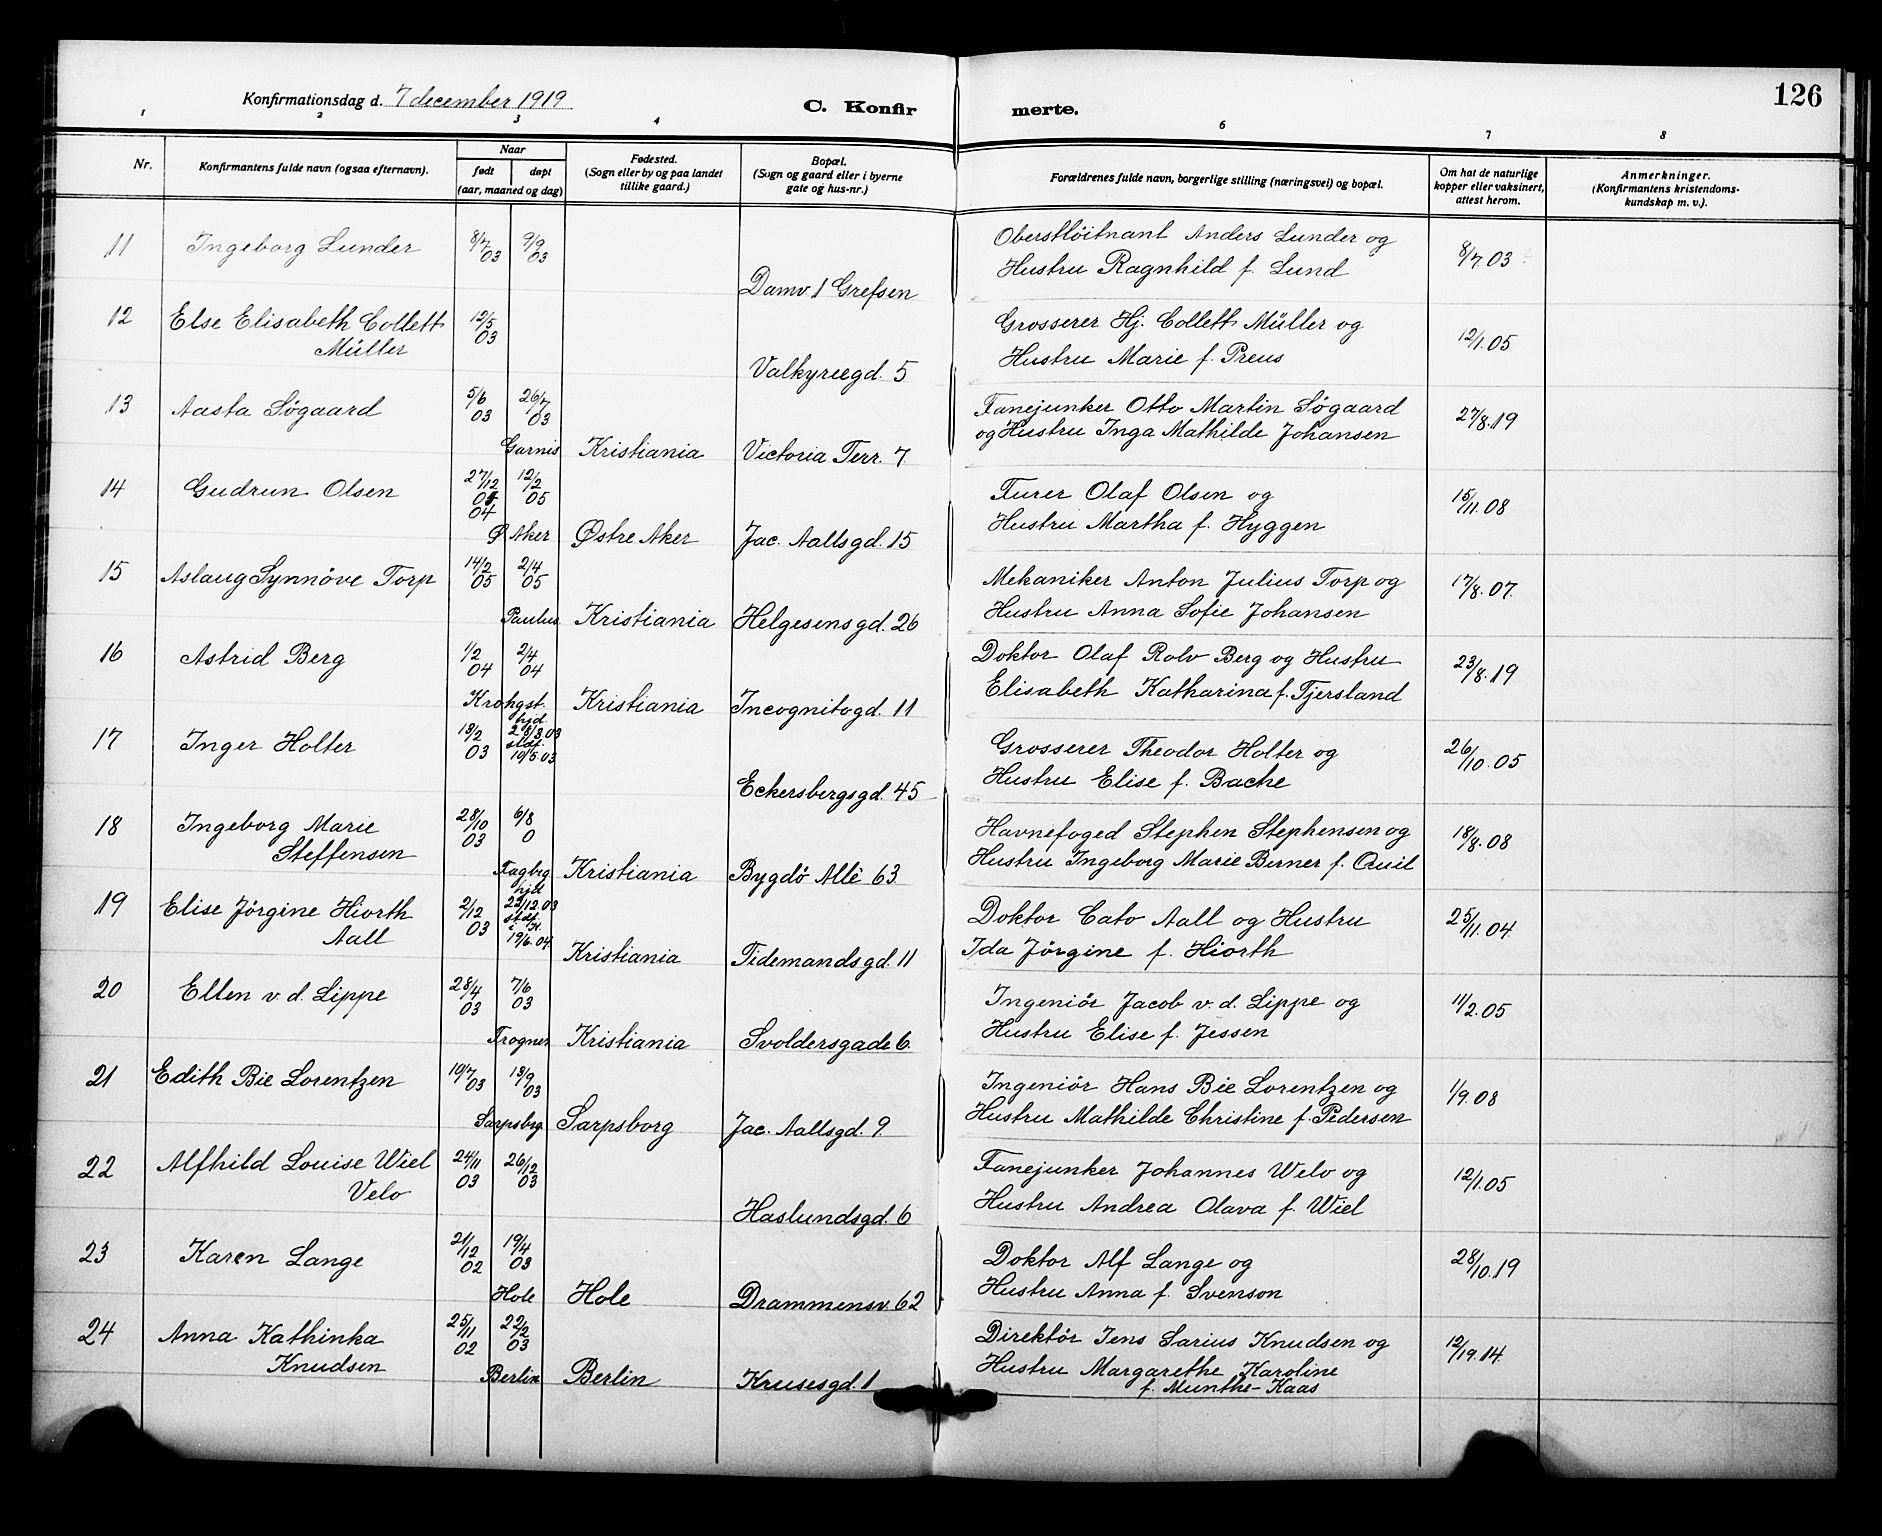 126
Konfirmationsdag d. 7 december 1919
C. Konfirmerte.
1 2 3 4 6 7 8
Nr.
Konfirmantens fulde navn (ogsaa efternavn).
Naar
født døpt
(aar, maaned og dag)
Fødested.
(Sogn eller by og paa landet
tillike gaard.)
Bopæl.
(Sogn og gaard eller i byerne
gate og hus-nr.)
Forældrenes fulde navn, borgerlige stilling (næringsvei) og bopæl.
Om hat de naturlige
kopper eller vaksinert,
attest herom.
Anmerkninger.
(Konfirmantens kristendoms-
kundskap m. v.).
11 Ingeborg Lunder 8/7 03 9/9 03 Oberstløitnant Anders Lunder og 8/7.03
Damv. 1 Grefsen Hustru Ragnhild f. Lund
12 Else Elisabeth Collett 12/5 03 Grosserer Hj. Collett Müller og 12/1.05
Müller Valkyriegd. 5 Hustru Marie f. Preus
13 Aasta Søgaard 5/6 03 26/7 03 Fanejunker Otto Martin Søgaard 27/8.19
Garnis Kristiania Victoria Terr. 7 og Hustru Inga Mathilde Johansen
14 Gudrun Olsen 27/12 04 12/2 05 Furer Olaf Olsen og 15/11.08
Ø Aker Østre Aker Jac. Aallsgd. 15 Hustru Martha f. Hyggen
15 Aslaug Synnöve Torp 14/2 05 2/4 05 Mekaniker Anton Julius Torp og 17/8.07.
Paulus Kristiania Helgesensgd. 26 Hustru Anna Sofie Johansen
16 Astrid Berg 1/2 04 2/4 04 Doktor Olaf Rolv Berg og Hustru 23/8.19
Krohgst. Kristiania Incognitogd. 11 Elisabeth Katharina f. Tjersland
17 Inger Holter 13/2 03 hjd. 28/3.03 stdf. 10/5.03 Grosserer Theodor Holter og 26/10.05
Eckersbergsgd. 45 Hustru Elise f. Bache
18 Ingeborg Marie 28/10 03 6/8 0 Havnefoged Stephen Stephensen og 18/8.08
Steffensen Fagbrg Kristiania Bygdö Allè 63 Hustru Ingeborg Marie Berner f. Quil
19 Elise Jörgine Hiorth 2/12 03 hjd 22/12.03 stdf. 19/6.04. Doktor Cato Aall og Hustru 25/11.04
Aall Kristiania Tidemandsgd. 11 Ida Jörgine f. Hiorth
20 Ellen v. d. Lippe 28/4 03 7/6 03 Ingeniör Jacob v. d. Lippe og 11/2.05
Frogner Kristiania Svoldersgade 6. Hustru Elise f. Jessen
21 Edith Bie Lorentzen 19/7 03 13/9 03 Ingeniör Hans Bie Lorentzen og 1/9.08
Sarpsbrg Sarpsborg Jac. Aallsgd. 9 Hustru Mathilde Christine f. Pedersen
22 Alfhild Louise Wiel 24/11 03 26/12 03 Fanejunker Johannes Welo og 12/1.05
Velo Haslundsgd. 6 Hustru Andrea Olava f. Wiel
23 Karen Lange 21/12 02 19/4 03 Doktor Alf Lange og 28/10.19
Hole Hole Drammensv. 62 Hustru Anna f. Svenson
24 Anna Kathinka 25/11 02 22/2 03 Direktör Jens Sarius Knudsen og 12/19.14.
Knudsen Berlin Berlin Krusesgd. 1 Hustru Margarethe Karoline
f. Munthe-Kaas